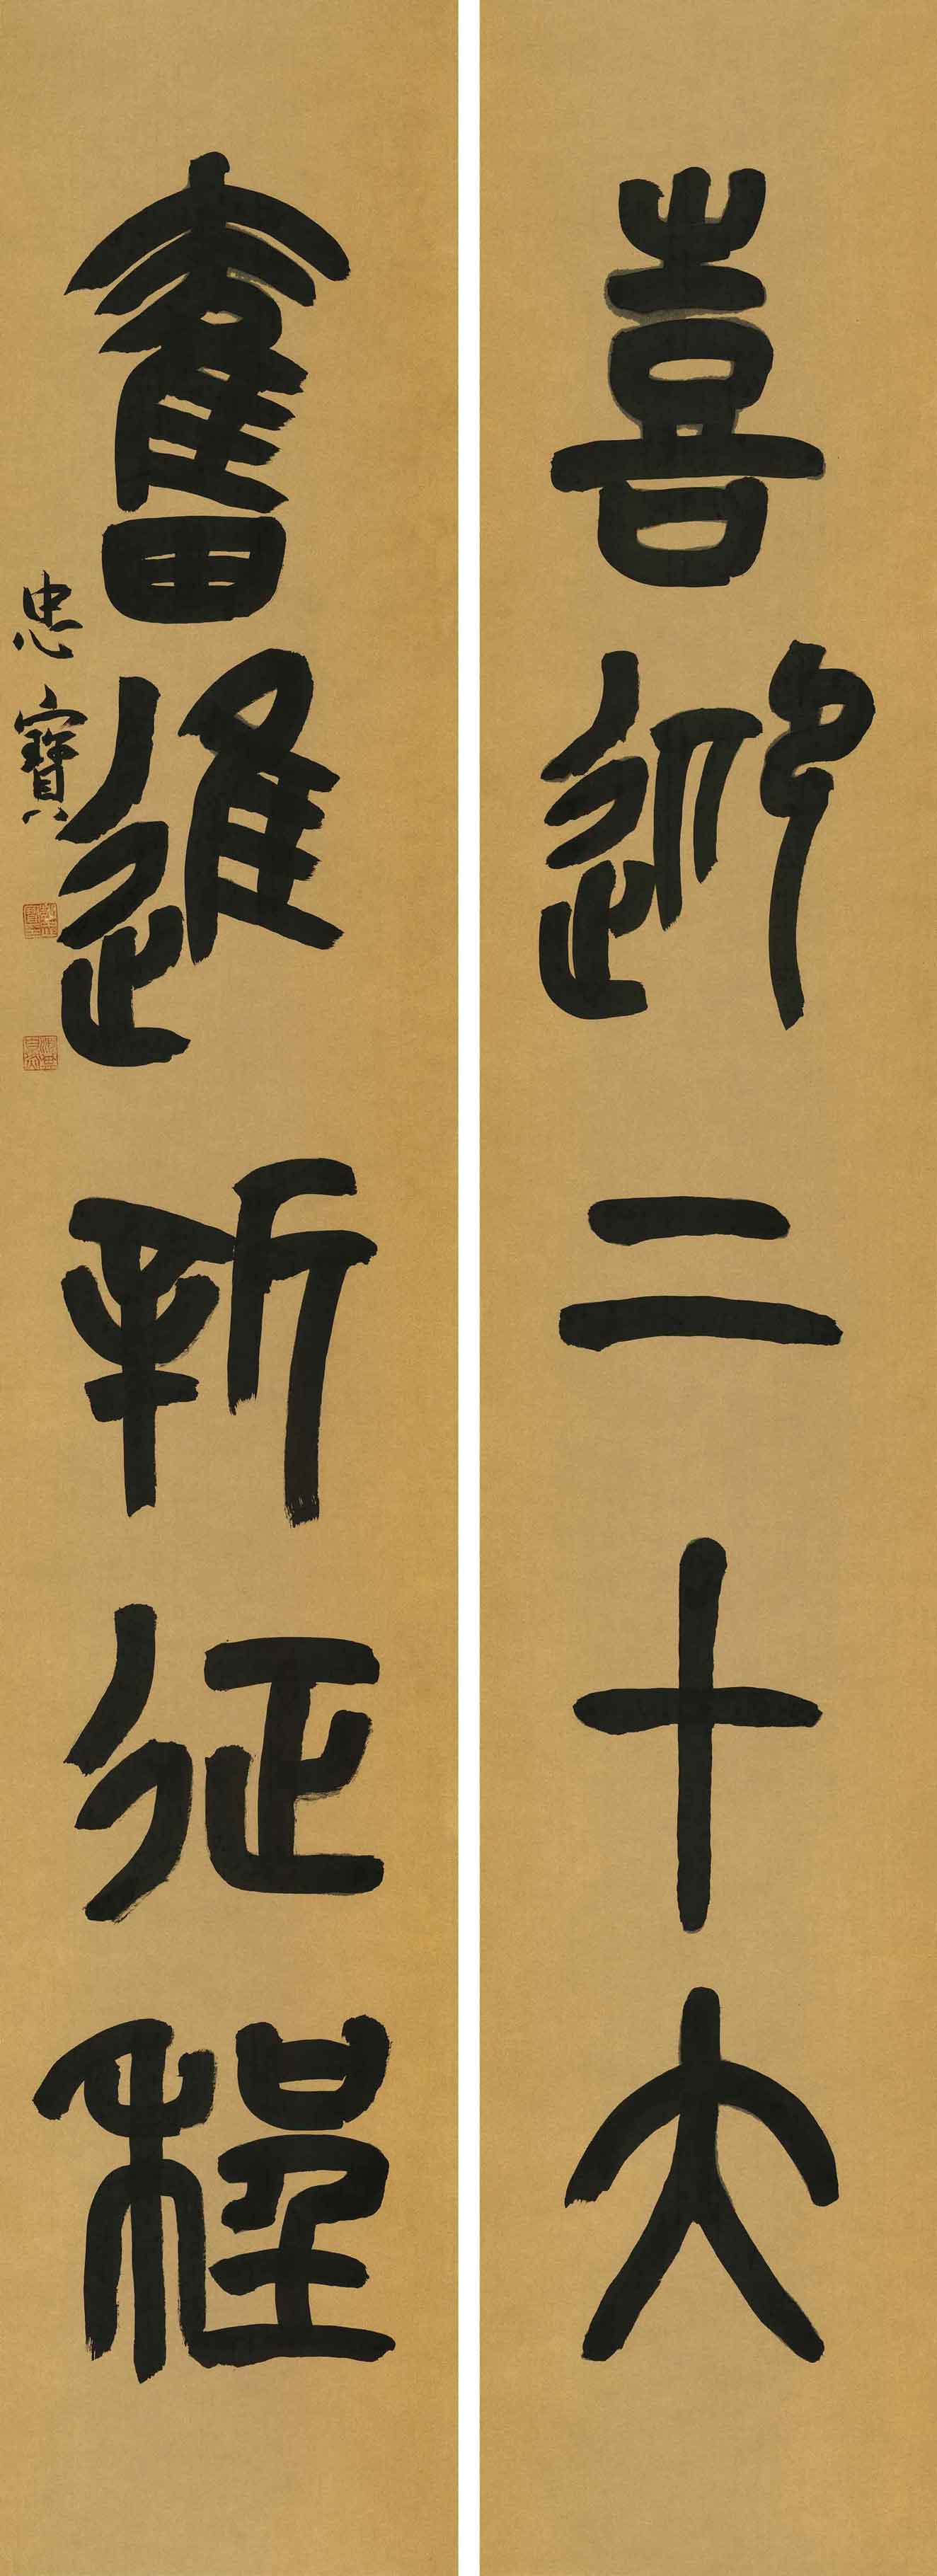 喜迎二十大
奮進新征程
忠寶